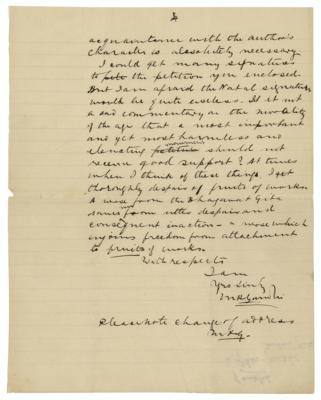 4
acquaintance with the author's
character is absolutely necessary.
I could get many signatures
to the petition you enclosed.
But I am afraid the Natal signatures
would be quite useless. Is it not
a sad commentary on the
of the age that a most important
and yet most harmless and
elevating movement should not
receive good support? At times
when I think of these things, I get
thoroughly despair of fruits of works.
A verse from the Bhagavat Gita
saves from utter despair and
consequent inaction - a verse which
enjoins freedom from attachment
to fruits of works.
With respects
I am
Yrs sincly
MKGandhi
Please note change of address
M.K.G.